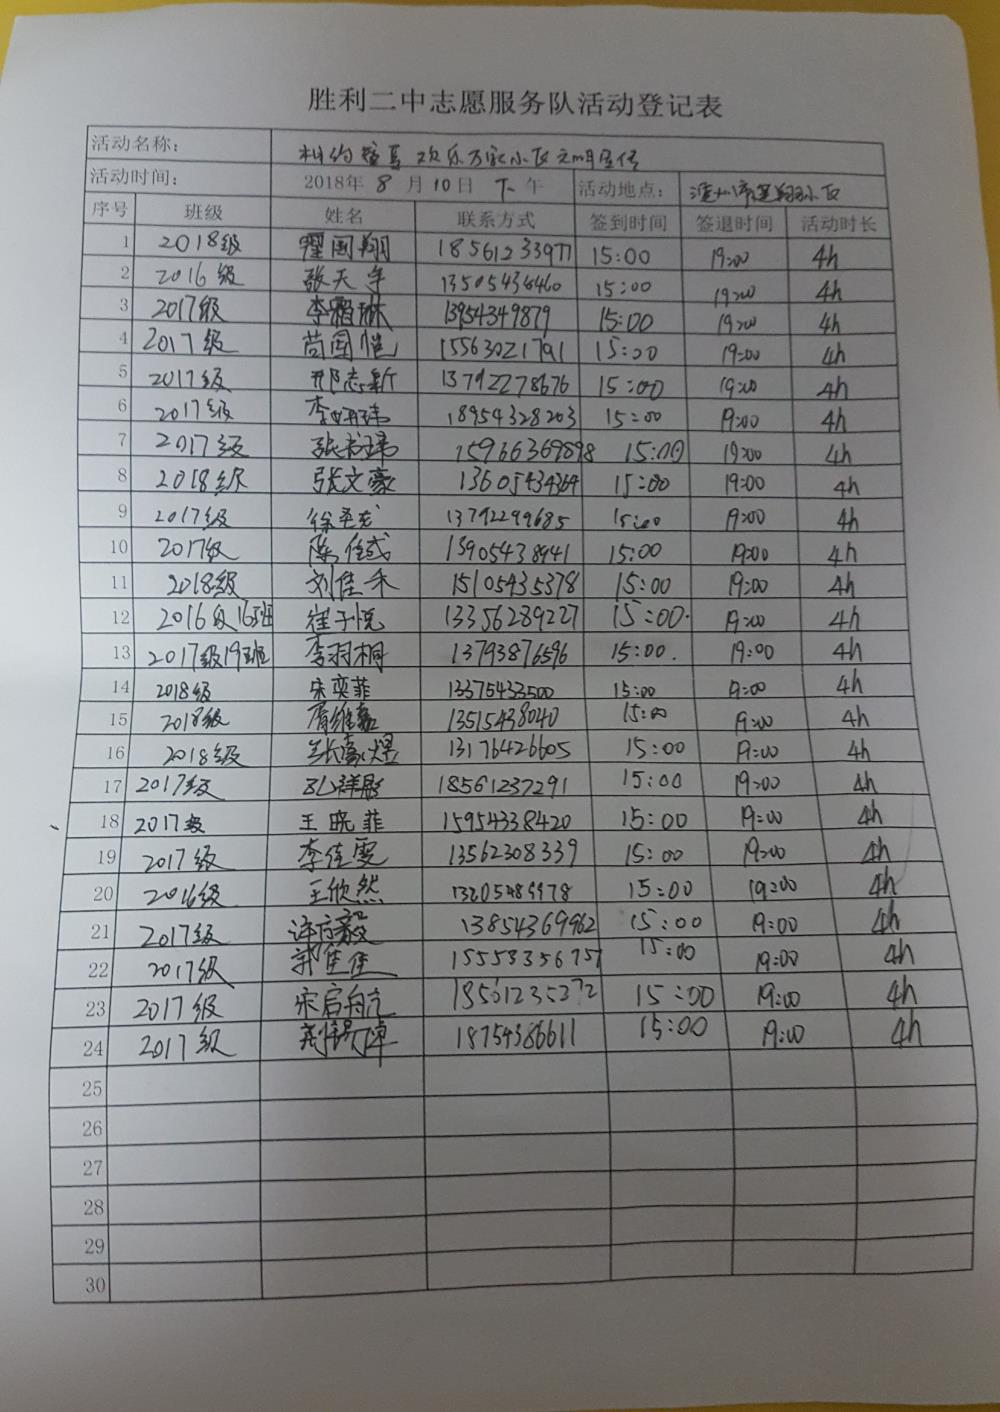 胜利二中志愿服务队活动登记表
活动名称： 欢乐万家小区文明宣传
活动时间： 2018年 8 月 10 日 下 午 活动地点： 小区
序号 班级 姓名 联系方式 签到时间 签退时间 活动时长
1 2018级 翟国翔 18561233977 15:00 19:00 4h
2 2016级 张天宇 13505436460 15:00 19:00 4h
3 2017级 李霜琳 13954349879 15:00 19:00 4h
4 2017级 苘国恺 15563021791 15:00 19:00 4h
5 2017级 邢志新 13792278676 15:00 19:00 4h
6 2017级 李妍玮 18954328203 15:00 19:00 4h
7 2017级 张书瑀 15966369898 15:00 19:00 4h
8 2018级 张文豪 13605434364 15:00 19:00 4h
9 2017级 13792299685 15:00 19:00 4h
10 2017级 陈佳彧 13905438941 15:00 19:00 4h
11 2018级 刘佳禾 15105435378 15:00 19:00 4h
12 2016级16班 崔子悦 13356289227 15:00. 19:00 4h
13 2017级19班 李羽桐 13793876596 15:00. 19:00 4h
14 2018级 宋奕菲 13375433500 15:00 19:00 4h
15 2018级 胥维嘉 13515438040 15:00 19:00 4h
16 2018级 张豪煜 13176426605 15:00 19:00 4h
17 2017级 孔祥彭 18561237291 15:00 19:00 4h
18 2017级 王晓菲 15954338420 15:00 19:00 4h
19 2017级 李佳雯 13562308339 15:00 19:00 4h
20 2016级 王欣然 15:00 19:00 4h
21 2017级 13854369962 15:00 19:00 4h
22 2017级 郭佳佳 15553356757 15:00 19:00 4h
23 2017级 宋启航 15:00 19:00 4h
24 2017级 18754386611 15:00 19:00 4h
25
26
27
28
29
30